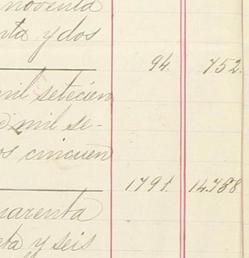 noventa
nta y dos
94. 752.
mil setecien
mil se-
os cincuen
1791. 14.788
uarenta
nta y seis